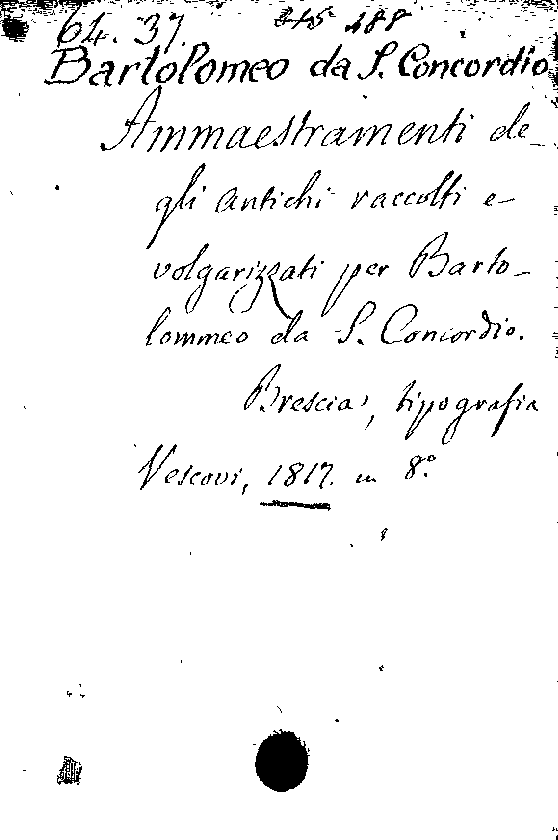 64. 37. 488
Bartolomeo da S. Concordio
Ammaestramenti de-
gli antichi raccolti e-
volgarizzati per Barto-
lommeo da S. Concordio.
Brescia, tipografia
Vescovi, 1817. in 8.º